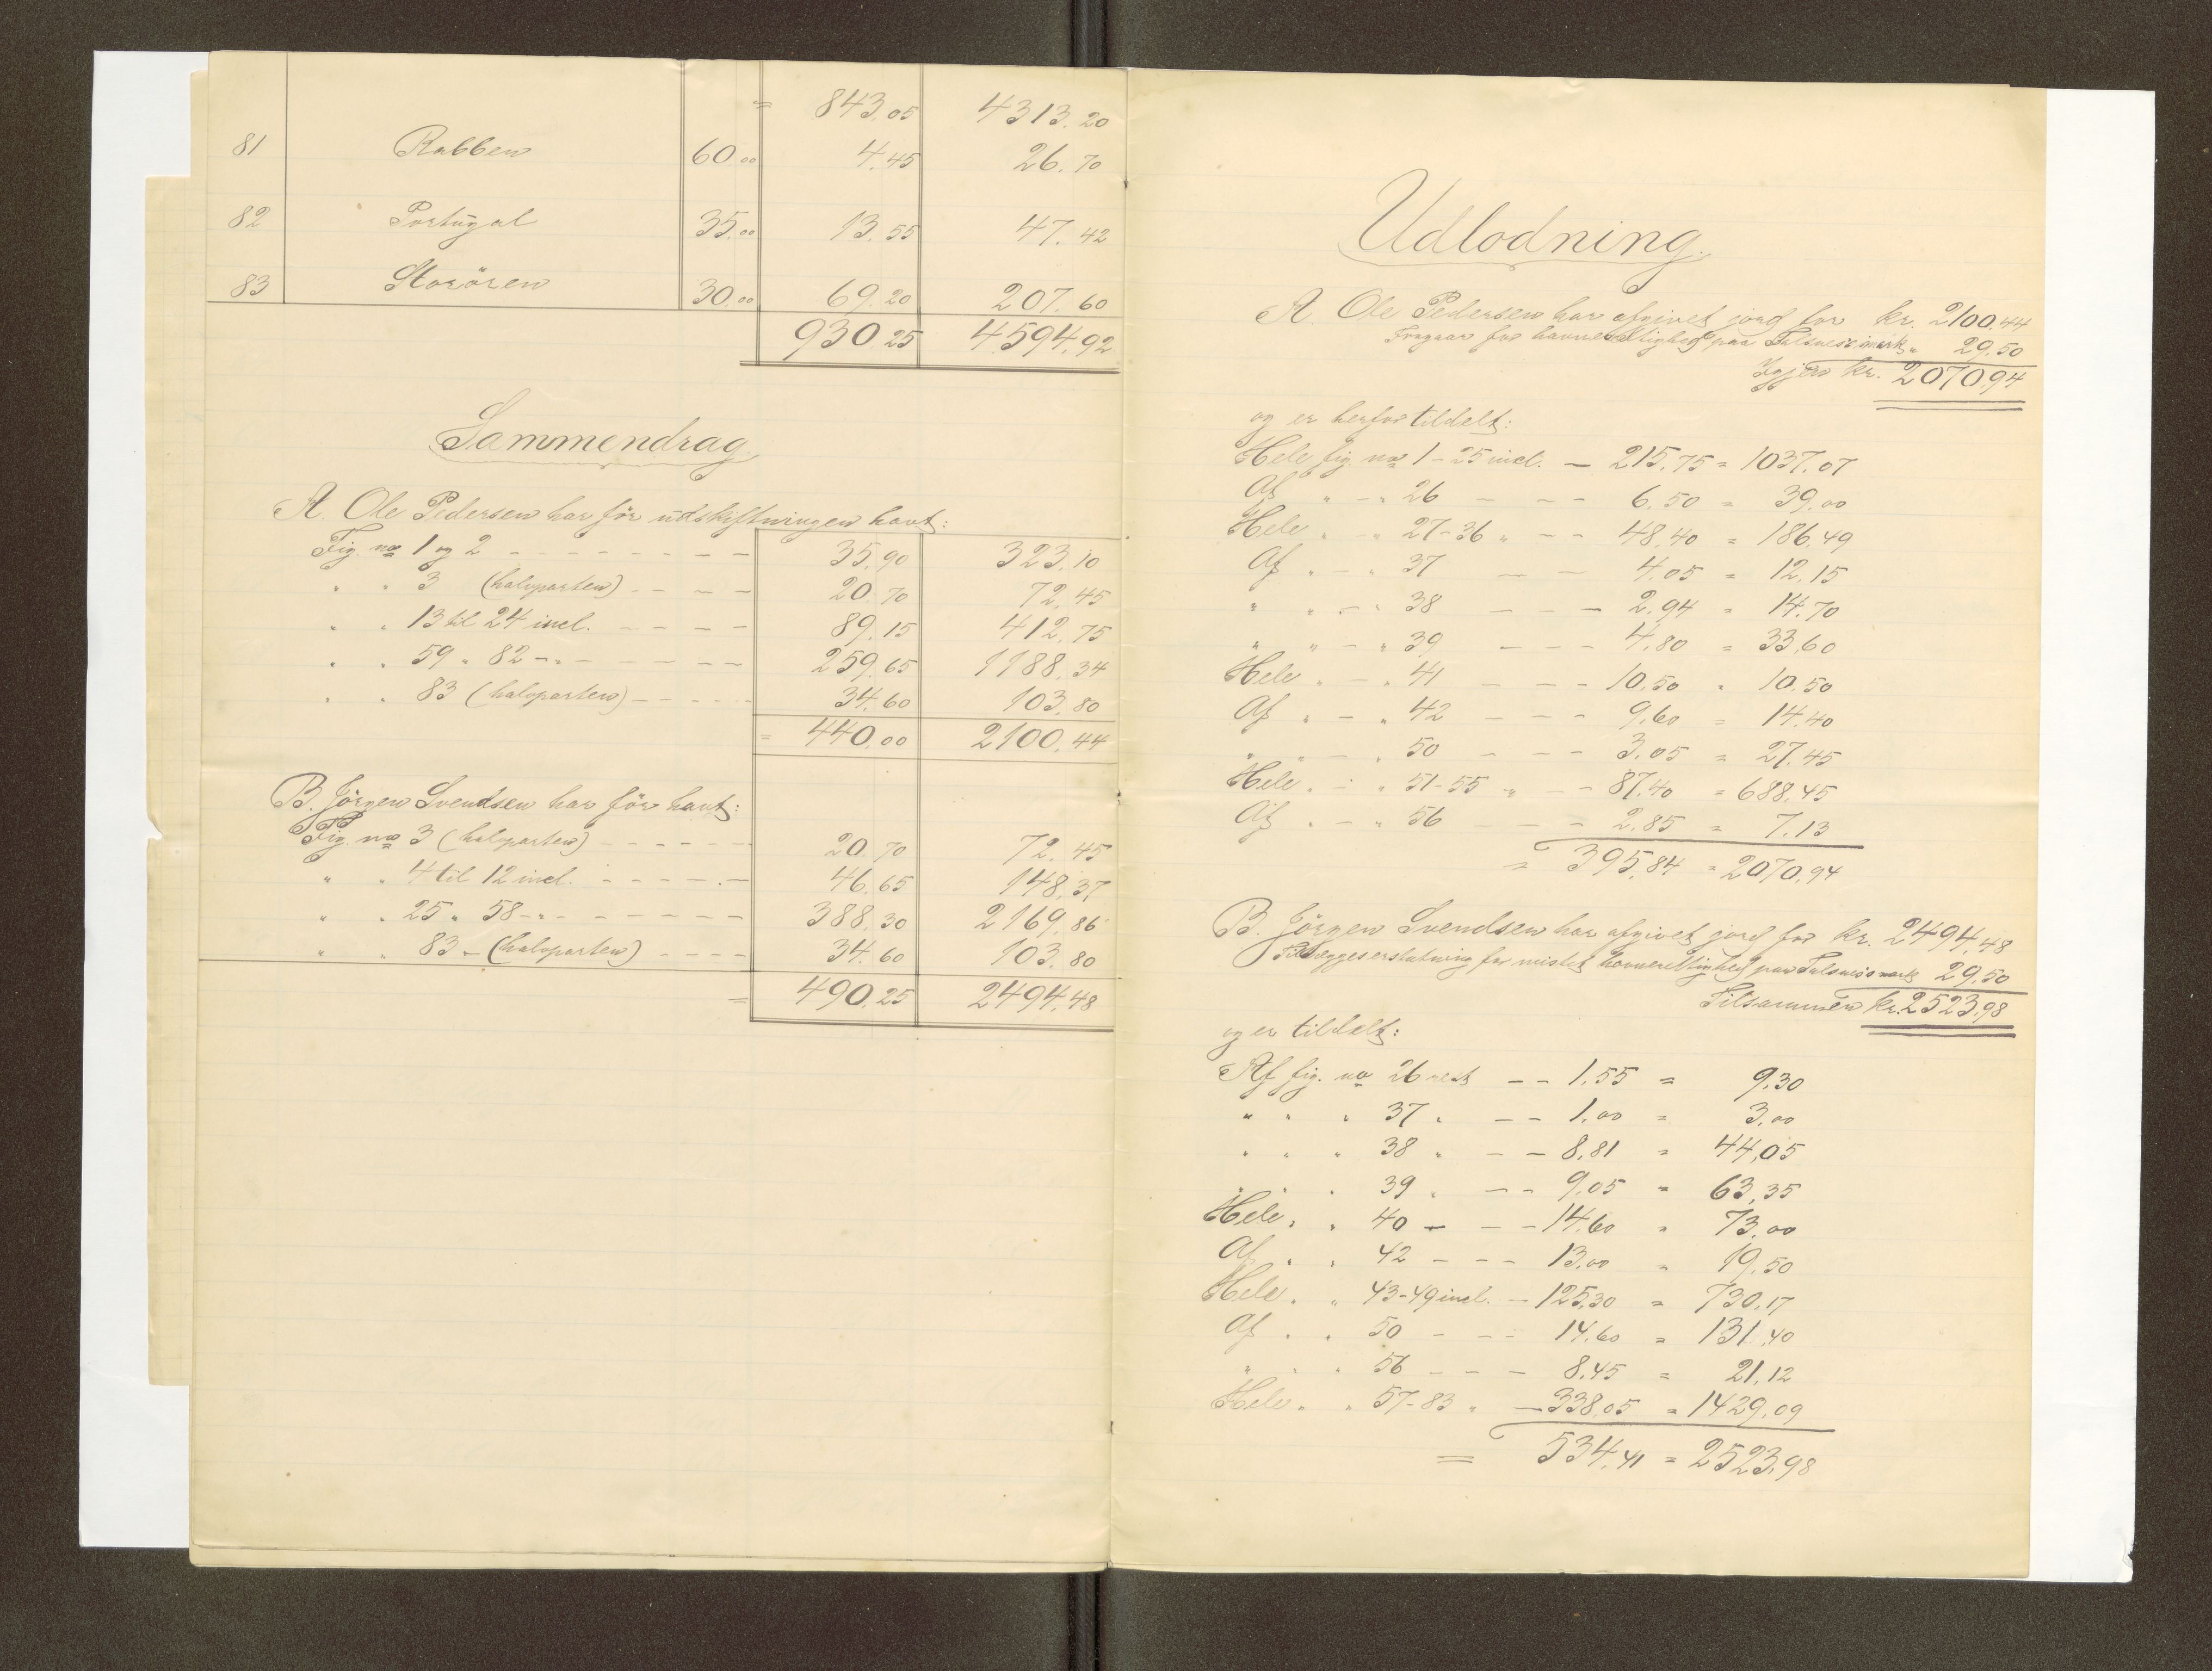 = 843.05 4313.20
81 Rabben 60.00 4.45 26.70
82 Portugal 35.00 13.55 47.42
83 Storören 30.00 69.20 207.60
930.25 4594.92
Sammendrag.
A. Ole Pedersen har för udskiftningen havt:
Fig. no 1 og 2 - - - - - - - - 35.90 323.10
" " 3 (halvparten) - - - - 20.70 72.45
" " 13 til 24 incl. - - - - 89.15 412.75
" " 59 " 82 -"- - - - - - 259.65 1188.34
" " 83 (halvparten) - - - - - 34.60 103.80
= 440.00 2100.44
B. Jörgen Svendsen har för havt:
Fig. no 3 (halvparten) - - - - - - 20.70 72.45
" " 4 til 12 incl. - - - - - - 46.65 148.37
" " 25 " 58 -"- - - - - - - 388.30 2169.86
" " 83 - (halvparten) - - - - 34.60 103.80
= 490.25 2494.48
Udlodning.
A. Ole Pedersen har afgivet jord for kr. 2100.44
Fragaar for havnerettighed paa Falsnes's mark " 29.50
Igjen kr. 2070.94
og er herfor tildelt:
Hele fig. no 1 - 25 incl. - 215.75 = 1037.07
Af " - " 26 - - - 6.50 = 39.00
Hele " - " 27-36 " - - 48.40 = 186.49
Af " - " 37 - - 4.05 = 12.15
" " - " 38 - - - 2.94 = 14.70
" " - " 39 - - - 4.80 = 33.60
Hele " - " 41 - - - 10.50 " 10.50
Af " - " 42 - - - 9.60 = 14.40
" " - " 50 - - - 3.05 = 27.45
Hele " - " 51-55 " - - 87.40 = 688.45
Af " - " 56 - - - 2.85 = 7.13
= 395.84 = 2070.94
B. Jörgen Svendsen har afgivet jord for kr. 2494.48
Tillæggeserstatning for mistet havnerettighed paa Falsnes's mark 29.50
Tilsammen kr. 2523.98
og er tildelt:
Af fig. no 26 rest - - 1.55 = 9.30
" " " 37 " - - 1.00 = 3.00
" " " 38 " - - 8.81 = 44.05
" " " 39 " - - 9.05 = 63.35
Hele " " 40 - - - 14.60 " 73.00
Af " " 42 - - - 13.00 " 19.50
Hele " " 43-49 incl. - 125.30 = 730.17
Af " " 50 - - - 14.60 = 131.40
" " " 56 - - - 8.45 = 21.12
Hele " " 57-83 " - 338.05 = 1429.09
= 534.41 = 2523.98